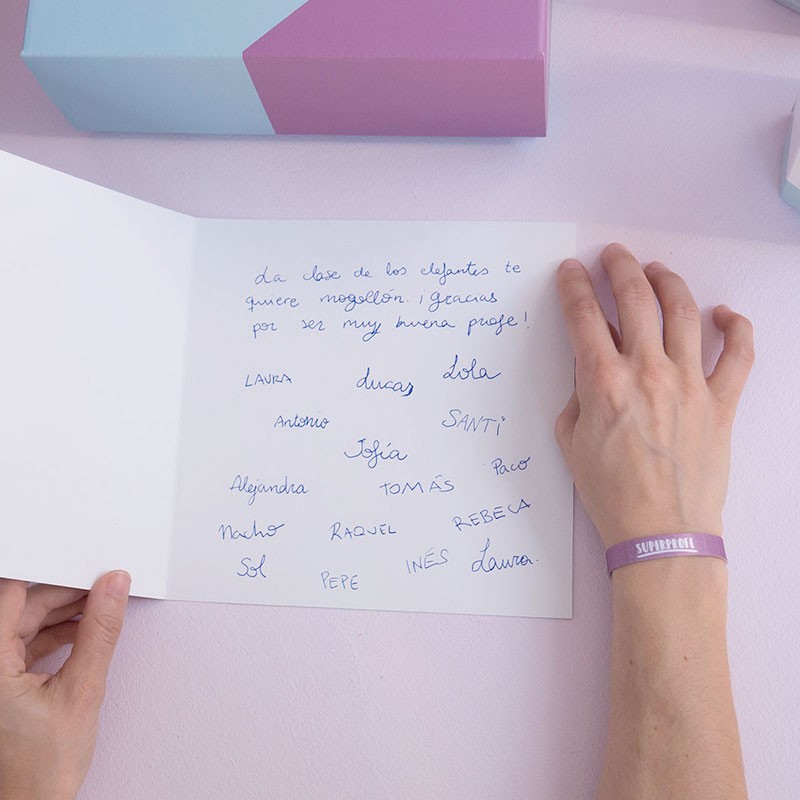 La clase de los elefantes te
quiere mogollón. ¡Gracias
por ser muy buena profe!
LAURA Lucas Lola
Antonio SANTI
Sofía
Alejandra TOMÁS Paco
Nacho RAQUEL REBECA
Sol PEPE INÉS Laura.
SUPERPROFE